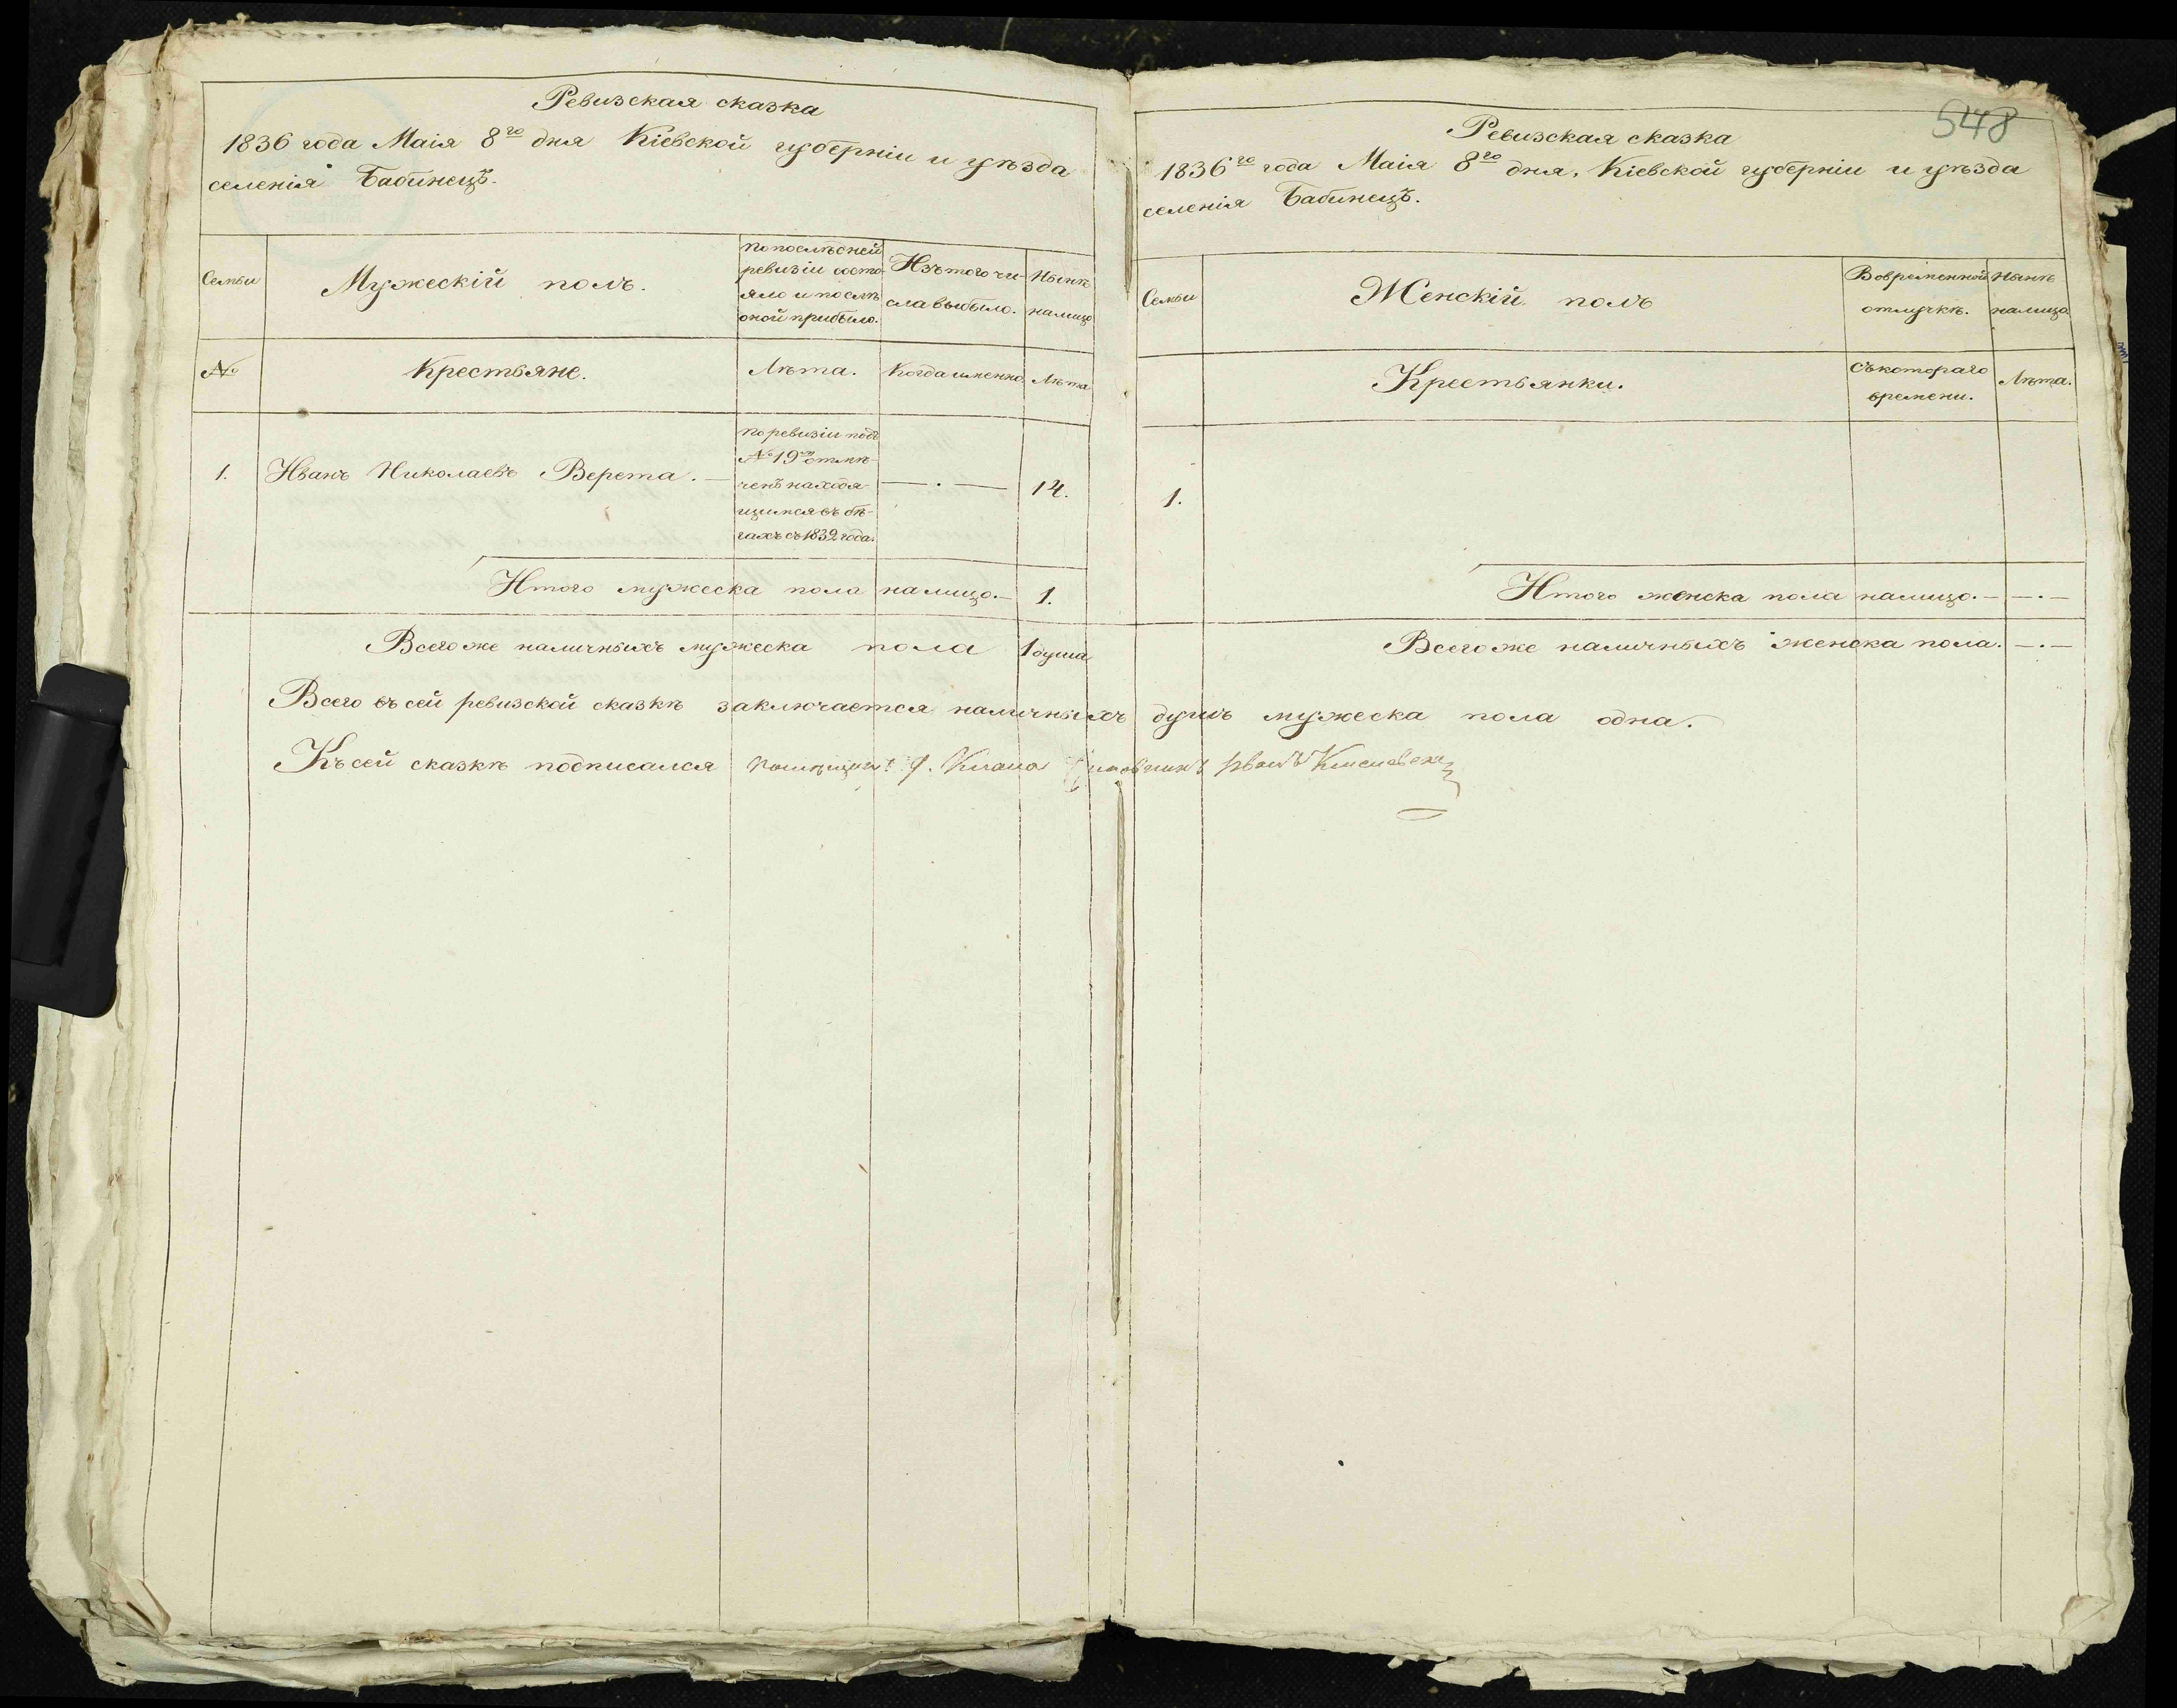 Ревизская сказка
1836 года Маія 8го дня Кіевской губерніи и уѣзда
селенія Бабинецъ.
Семьи
Мужескій полъ.
По послѣдней
ревизіи состо-
яло и послѣ
оной прибыло.
Изъ того чи-
сла выбыло.
Нынѣ
налицо
№
Крестьяне.
Лѣта.
Когда именно
Лѣта
1.
Иванъ Николаевъ Верета.
По ревизіи подъ
№ 19м отмѣ-
ченъ находя-
щимся въ бѣ-
гахъ съ 1832 года.
— . —
14.
Итого мужеска пола налицо. — 1.
Всего же наличныхъ мужеска пола 1 душа
Всего въ сей ревизской сказкѣ заключается наличныхъ душъ мужеска пола одна.
Къ сей сказкѣ подписался
548
Ревизская сказка
1836го года Маія 8го дня, Кіевской губерніи и уѣзда
селенія Бабинецъ.
Семьи
Женскій полъ
Во временной
отлучкѣ.
Нынѣ
налицо
Крестьянки.
Съ котораго
времени.
Лѣта.
1.
Итого женска пола налицо. — — . —
Всего же наличныхъ женска пола. — . —